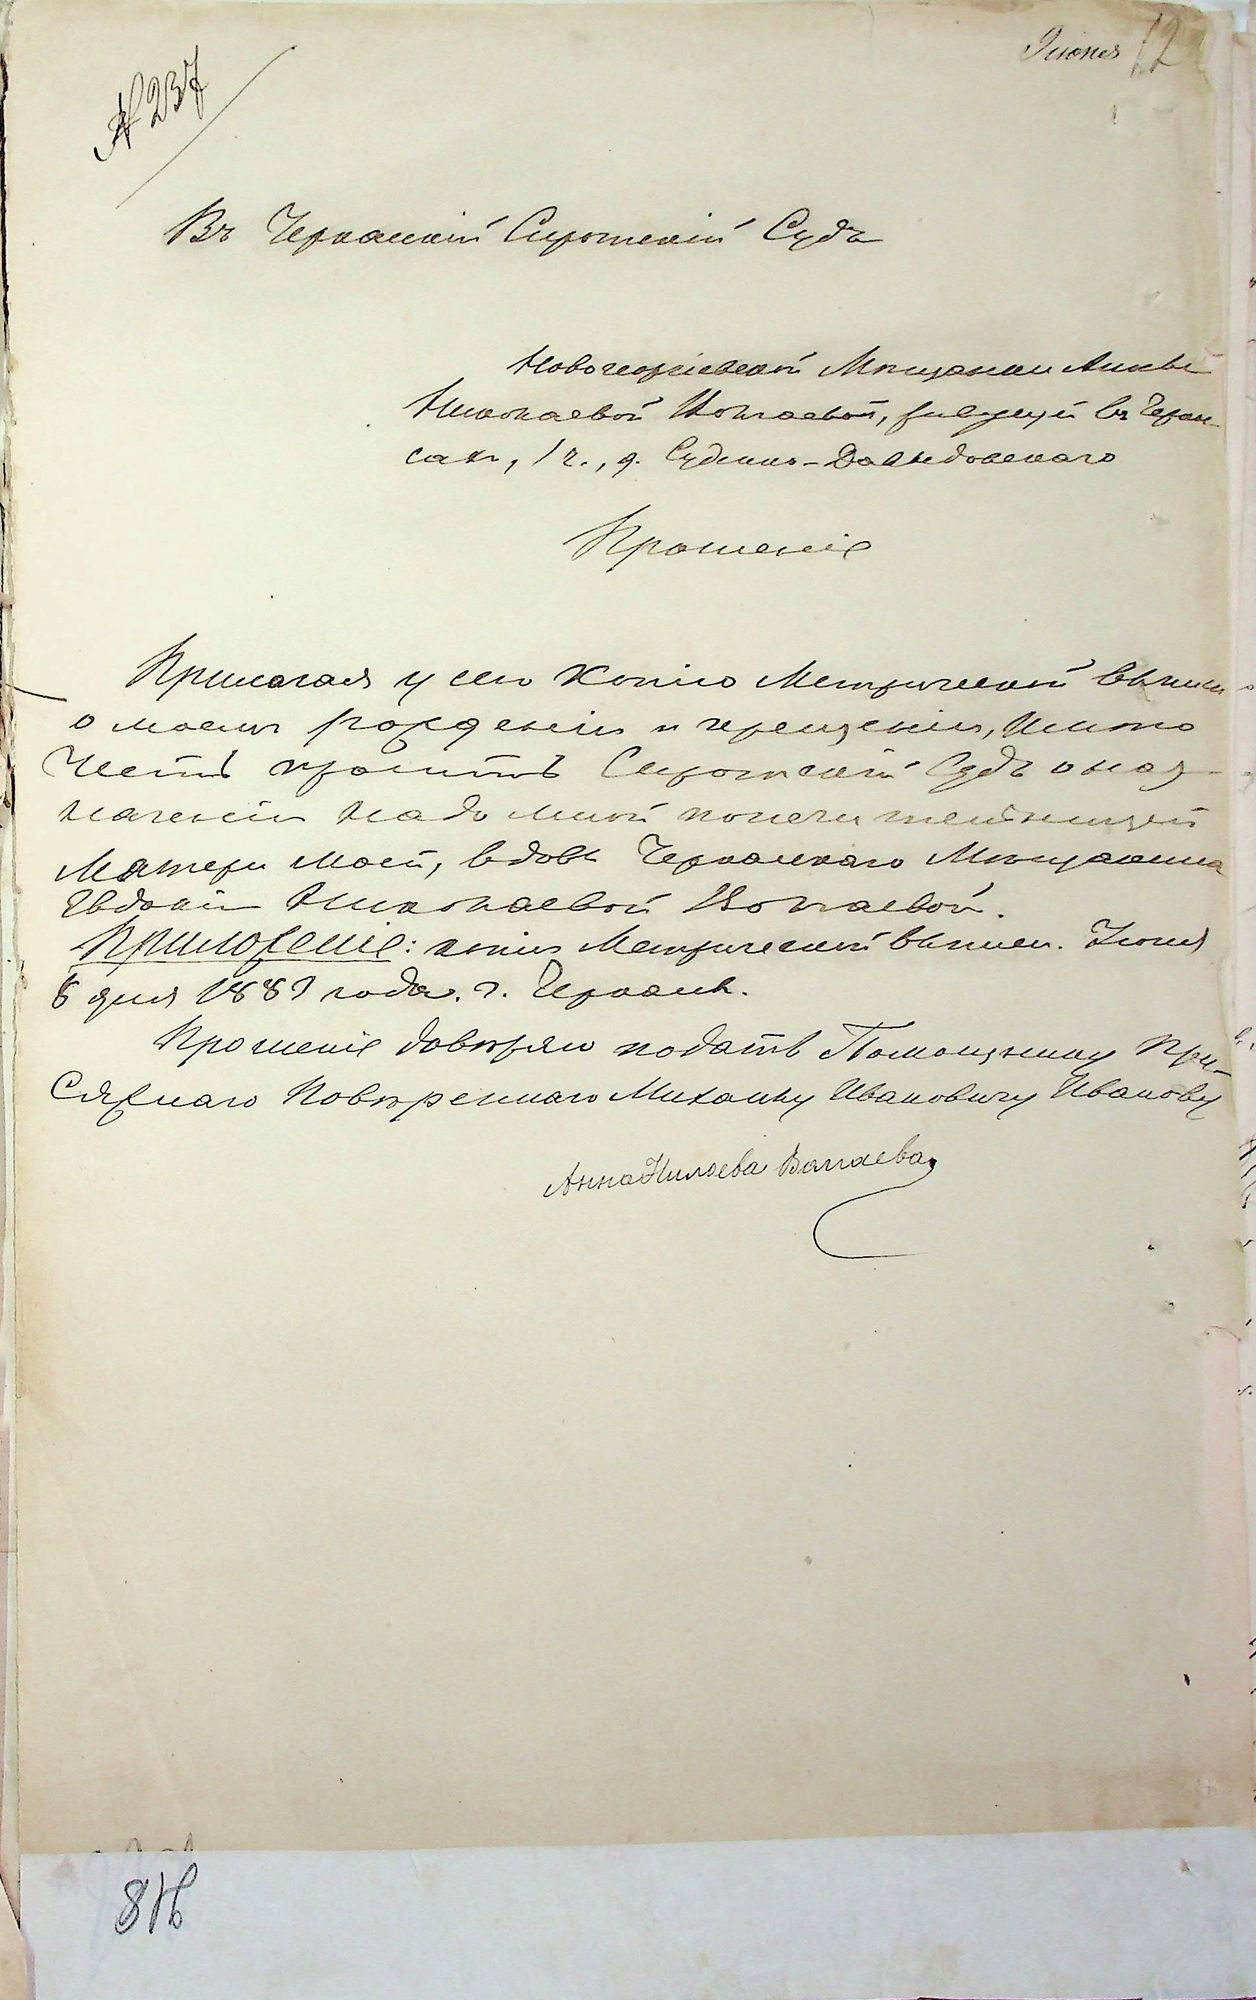 Июня 12
№ 237
Въ Черкаскій Сиротскій Судъ
Новогеоргіевской Мѣщанки Анны
Николаевой, живущей въ Черкас-
сахъ, 1 ч., д. Давыдовскаго
Прошеніе
Прилагая у сего Копію Метрической выписи
о моемъ рожденіи и крещеніи, Имѣю
Честь просить Сиротскій Судъ о наз-
наченіи надо мной попечительницей
Матери моей, вдовы Черкаскаго Мѣщанина
Евдокіи Николаевой.
Приложеніе: копія Метрической выписи. Іюня
8 дня 1889 года. г. Черкасы.
Прошеніе довѣряю подать Помощнику При-
сяжнаго Повѣреннаго Михаилу Ивановичу Иванову
Анна